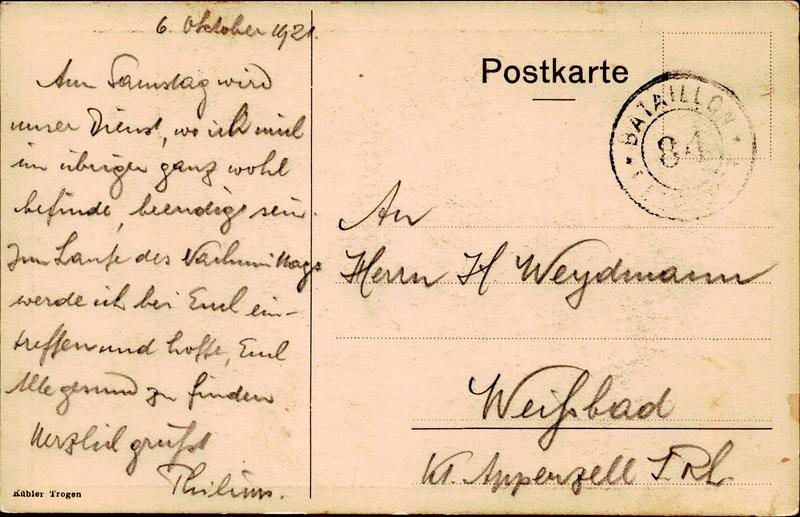 6. Oktober 1921.
Am Samstag wird
unser Dienst, wo ich mich
im übrigen ganz wohl
befinde, beendigt sein.
Im Laufe des Nachmittags
werde ich bei Euch ein-
treffen und hoffe, Euch
Alle gesund zu finden.
Herzlich grüsst
Kübler Trogen
Postkarte
* BATAILLON *
84
An
Herrn H. Weydmann
Weißbad
Kt. Appenzell I. Rh.